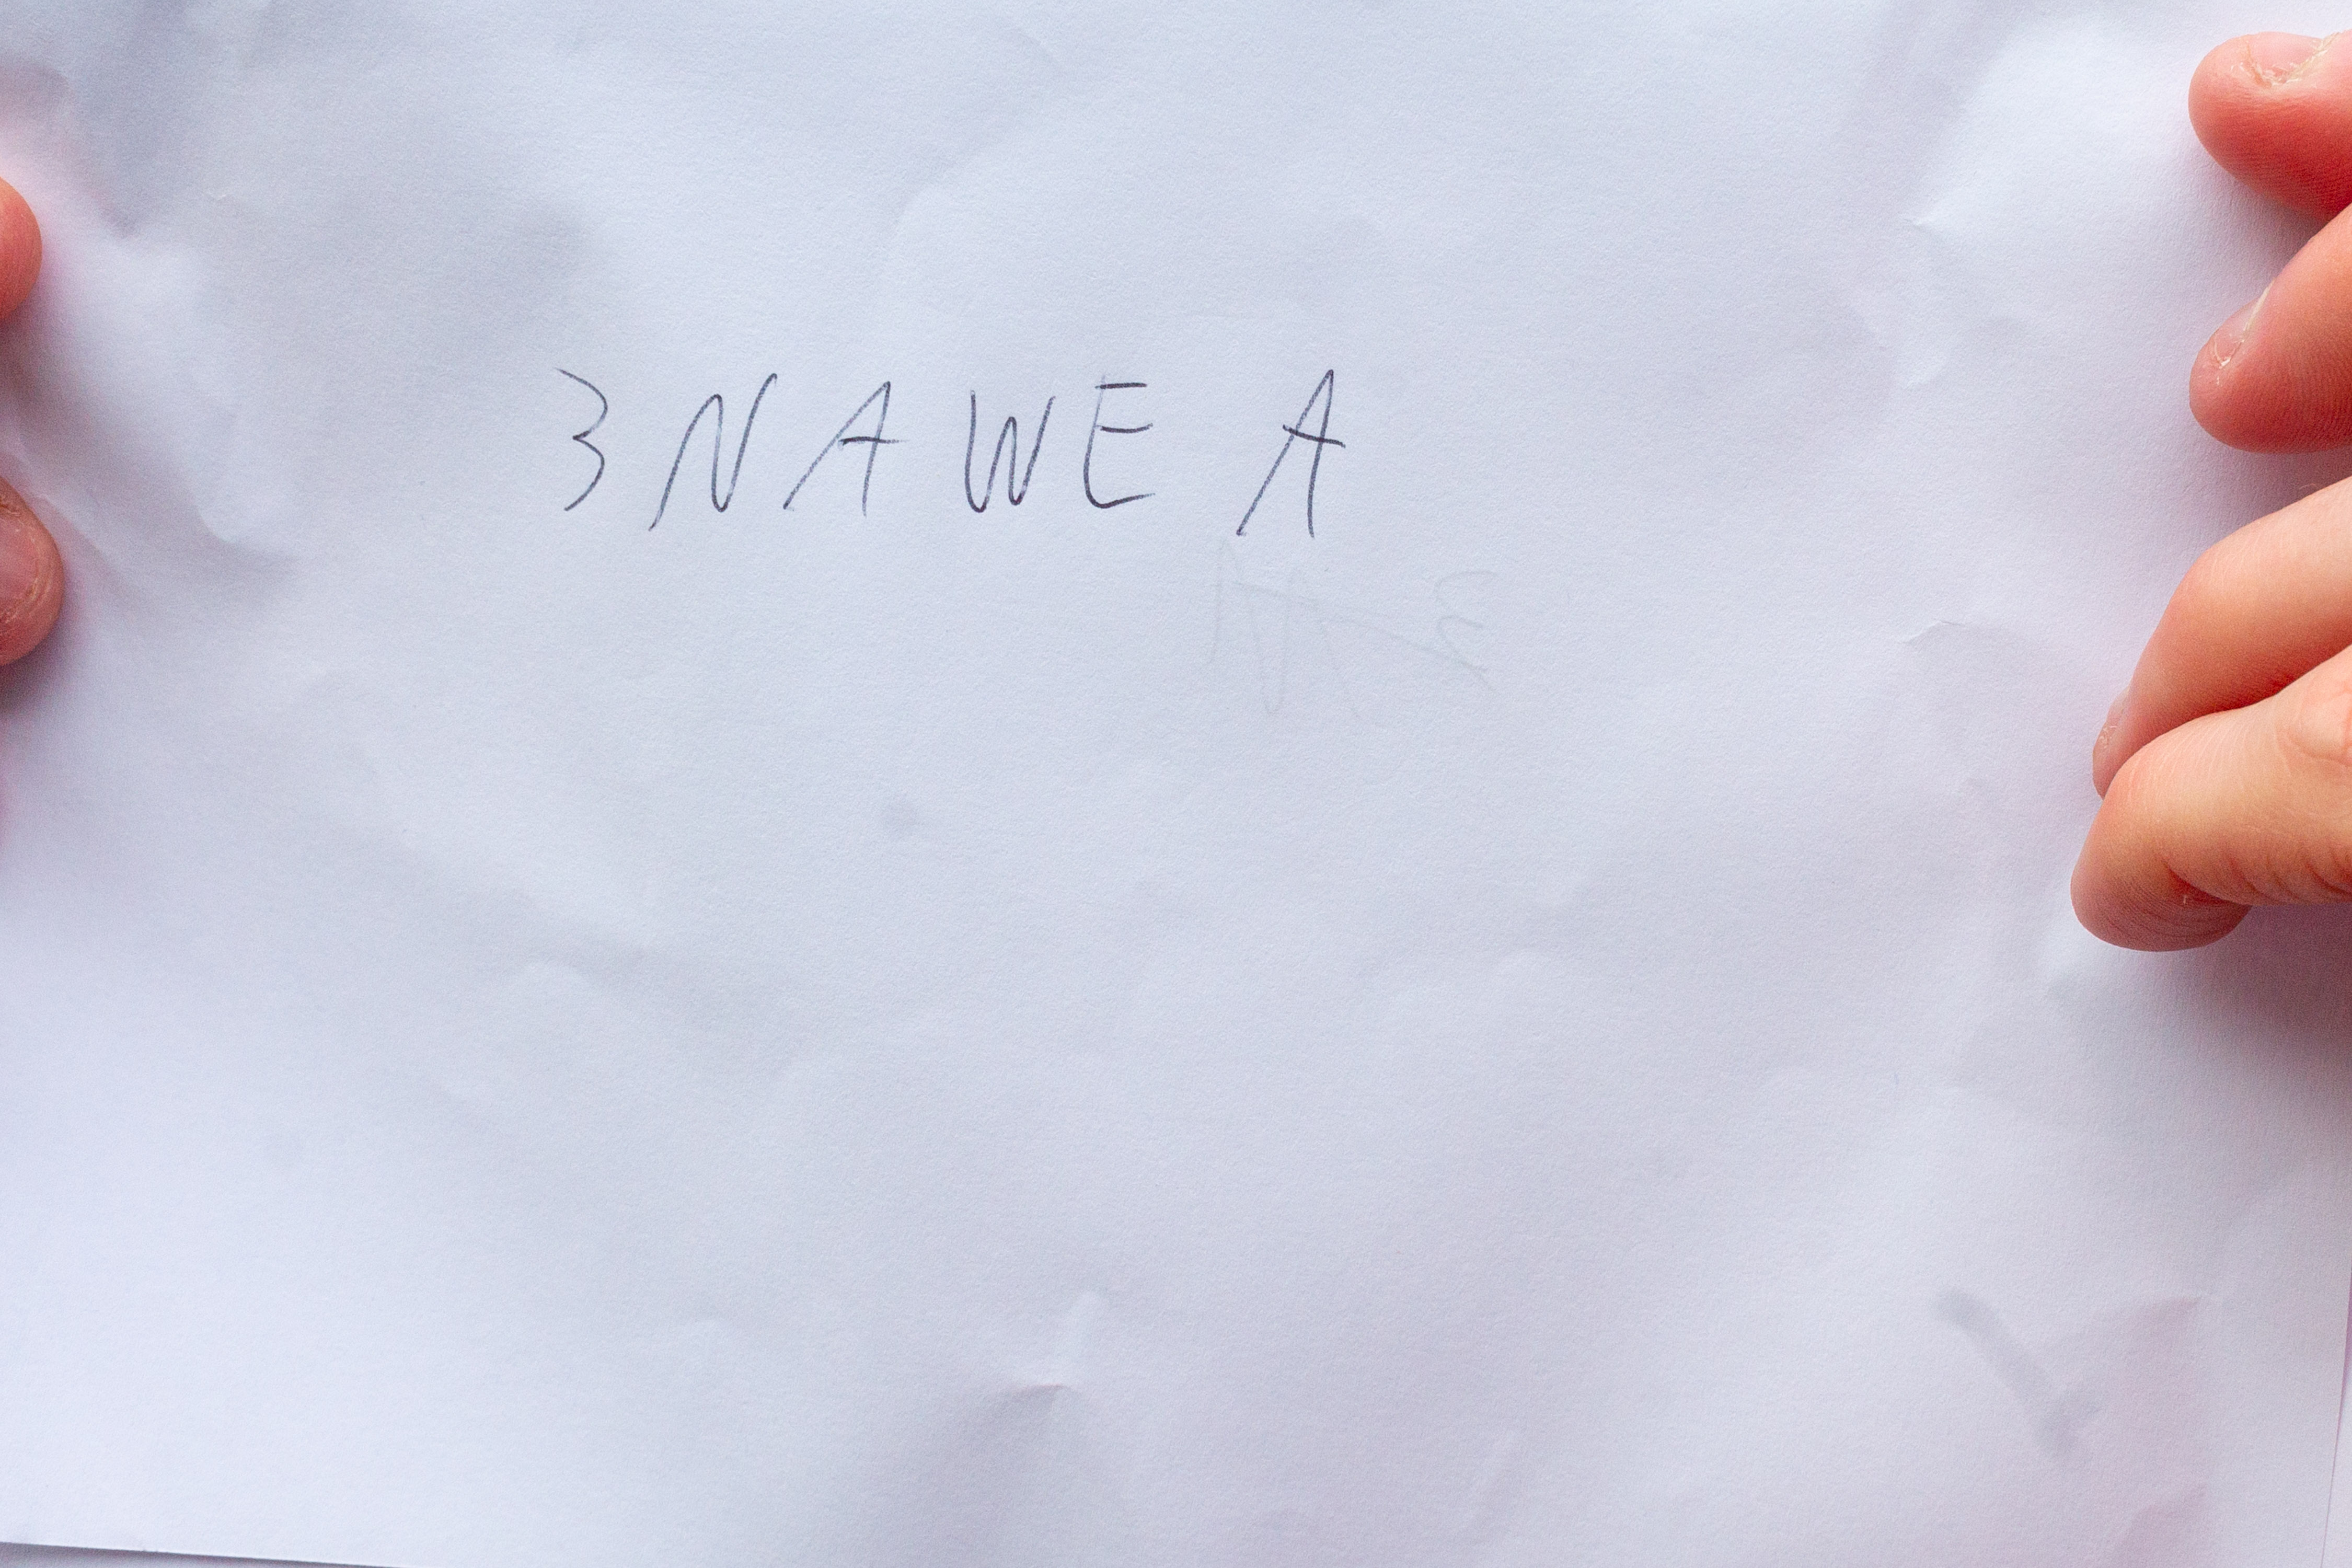 3 N A W E A